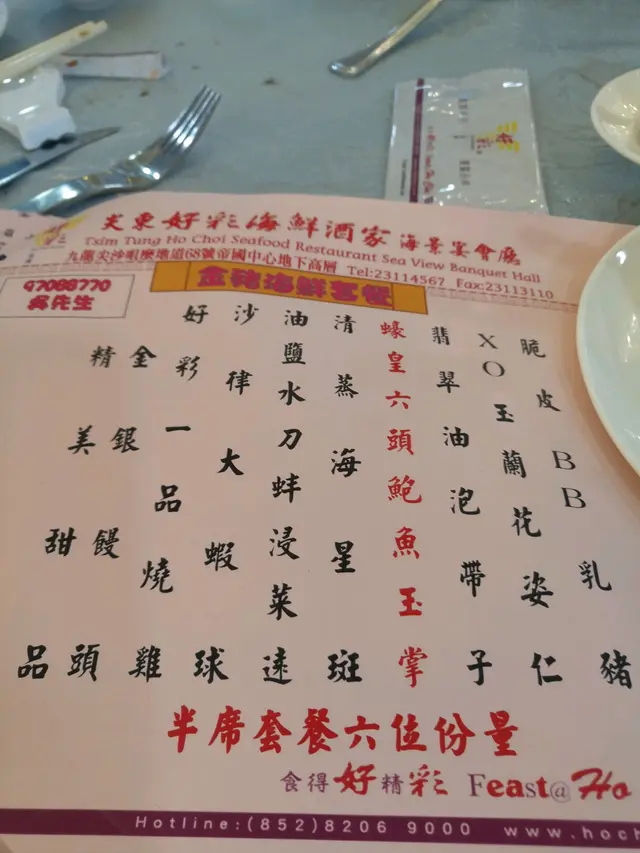 尖東好彩海鮮酒家 海景宴會廳
Tsim Tung Ho Choi Seafood Restaurant Sea View Banquet Hall
九龍尖沙咀麼地道68號帝國中心地下高層 Tel:23114567 Fax:23113110
金豬海鮮套餐
97088770
吳先生
脆皮BB乳豬
XO玉蘭花姿仁
翡翠油泡帶子
蠔皇六頭鮑魚玉掌
清蒸海星斑
油鹽水刀蚌浸菜遠
沙律大蝦球
好彩一品燒雞
金銀饅頭
精美甜品
半席套餐六位份量
食得好精彩 Feast@Ho
Hotline:(852)8206 9000 www.hoch